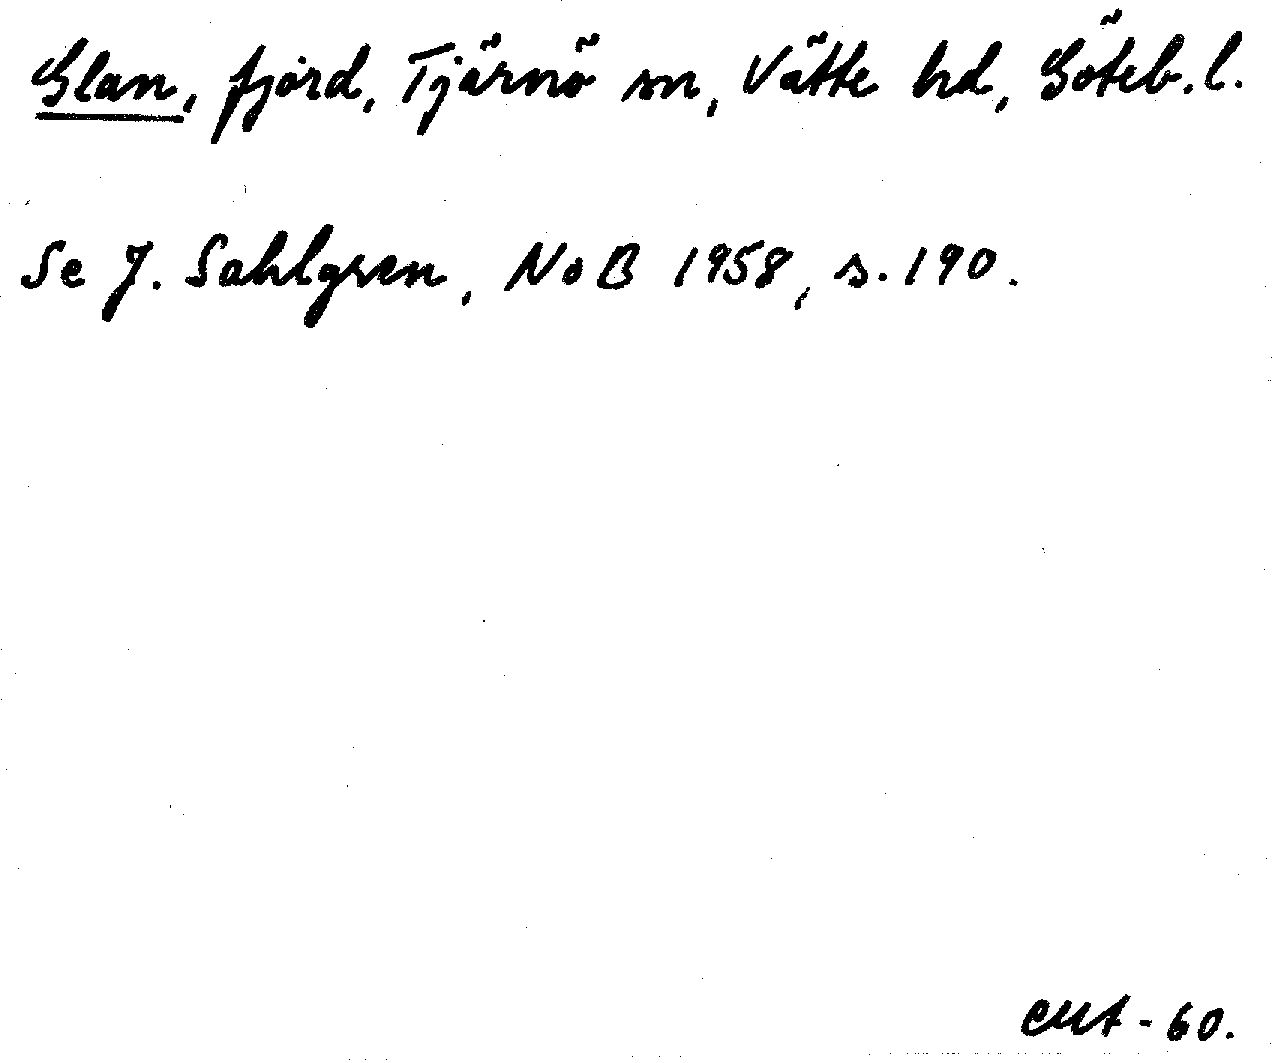 Glan, fjord, Tjärnö sn, Vätte hd, Göteb. l.
Se J. Sahlgren, NoB 1958, s. 190.
-60.